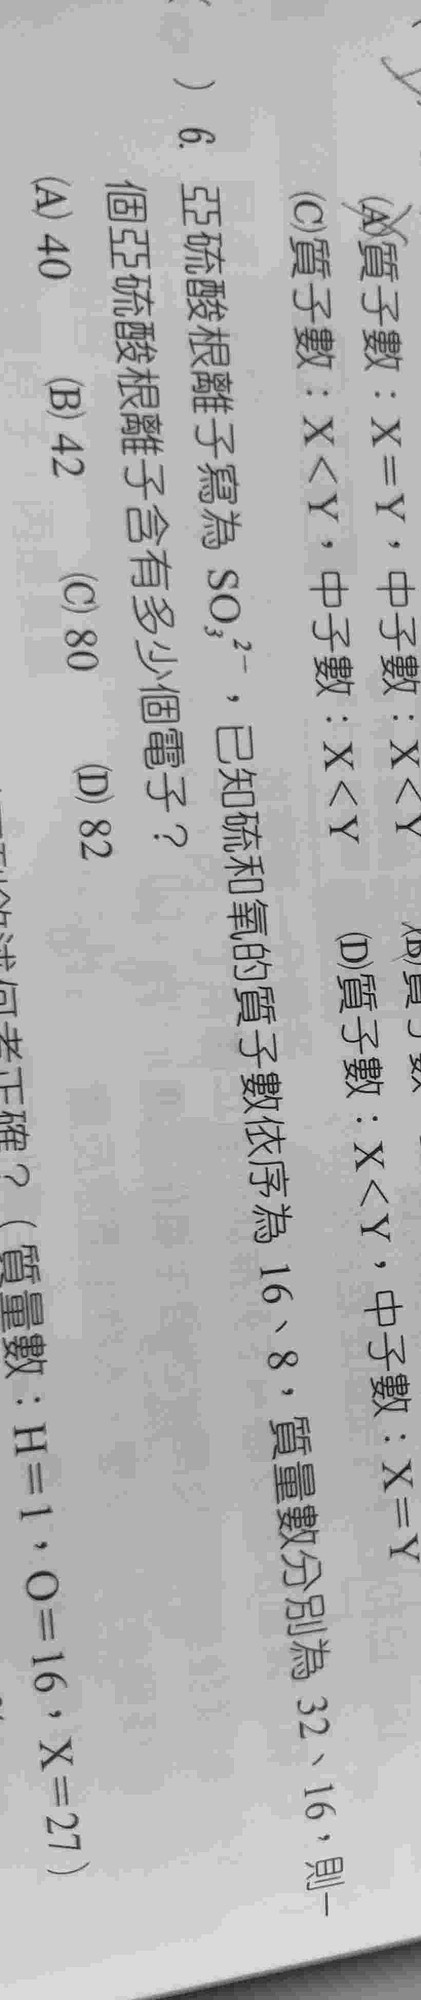 (A)質子數：X＝Y，中子數：X＜Y
(C)質子數：X＜Y，中子數：X＜Y (D)質子數：X＜Y，中子數：X＝Y
) 6. 亞硫酸根離子寫為 SO₃²⁻，已知硫和氧的質子數依序為 16、8，質量數分別為 32、16，則一
個亞硫酸根離子含有多少個電子？
(A) 40 (B) 42 (C) 80 (D) 82
何者正確？（質量數：H＝1，O＝16，X＝27）